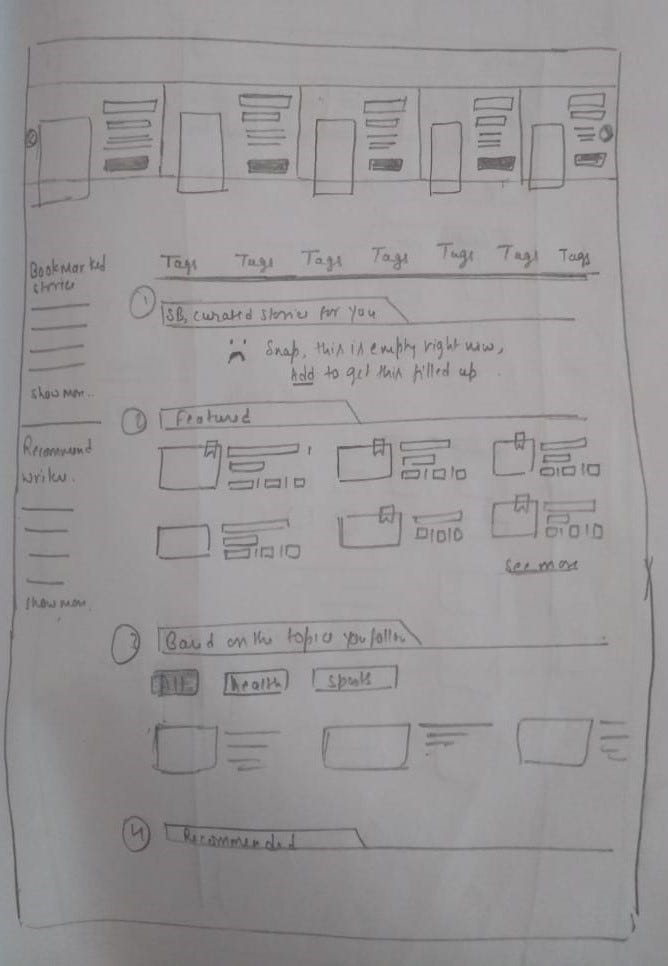 Tags Tags Tags Tags Tags Tags Tags
Bookmarked
stories
show mor..
Recommend
writer.
show mor.
1
SB, curated stories for you
Snap, this is empty right now,
Add to get this filled up.
2
Featured
see more
3
Based on the topics you follow
All health sports
4
Recommended